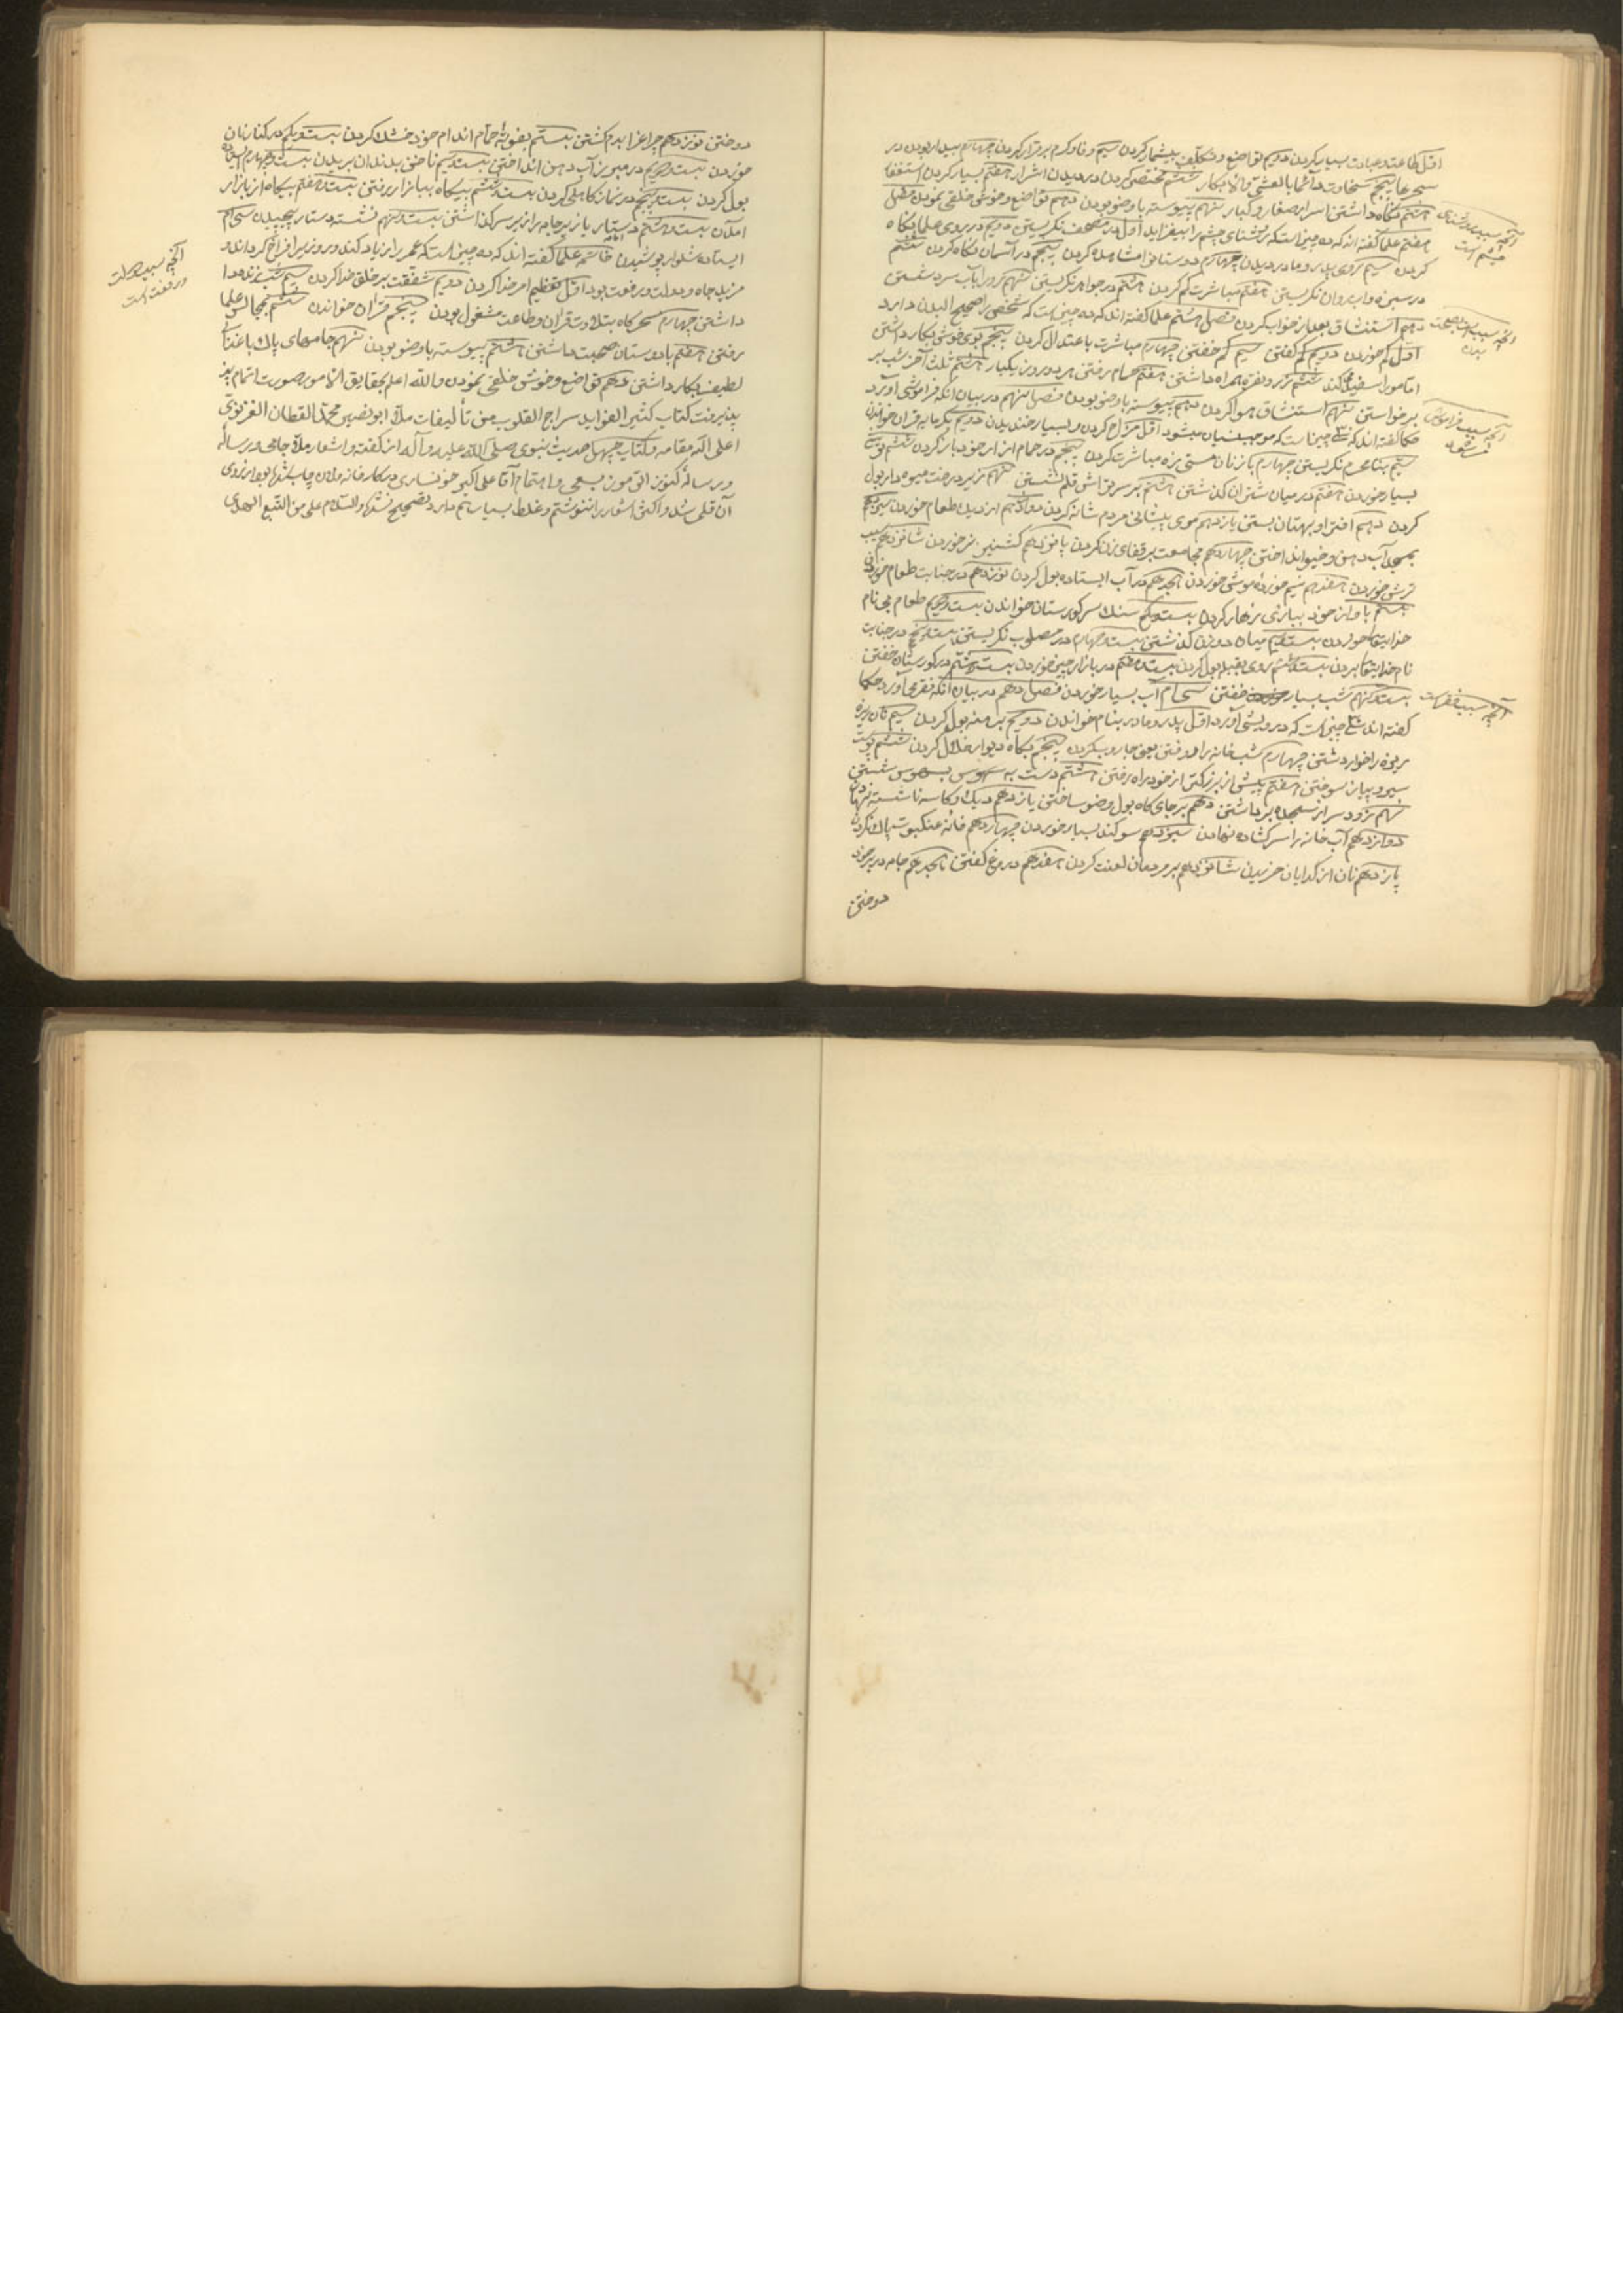 اول طاعت و عبادت بسیار کردن دویم تواضع و تکلف بیشمار کردن سیم وفا و کرم برقرار کردن چهارم بیدار بودن در
سحرها پنجم سخاوت دائما بالعشی ششم مختصی کردن در دیدن اشرار هفتم بسیار کردن استغفار
هشتم نگاه داشتن اسرار صغار و کبار نهم پیوسته با وضو بودن دهم تواضع و خوش خلقی نمودن فصل
هفتم علما گفته اند که ده چیز است که روشنای چشم را بیفزاید اول در مصحف نگریستن دویم در روی علما نگاه
کردن سیم روی پدر و مادر دیدن چهارم دوستانرا مشاهده کردن پنجم در آسمان نگاه کردن ششم
در سبزه و آب روان نگریستن هفتم مباشرت کم کردن هشتم در جواهر نگریستن نهم رو را بآب سرد شستن
دهم استنشاق بعد از خواب کردن فصل هشتم علما گفته اند که ده چیز است که شخص را صحیح البدن دارد
اول کم خوردن دویم کم گفتن سیم کم خفتن چهارم مباشرت باعتدال کردن پنجم بوی خوش بکار داشتن
ششم زر و نقره همراه داشتن هفتم حمام رفتن هر دو روز یکبار هشتم ثلث آخر شب بر
برخواستن نهم استنشاق هوا کردن دهم پیوسته با وضو بودن فصل نهم در بیان آنکه فراموشی آورد
حکما گفته اند که سی چیز است که موجب نسیان میشود اول مزاح کردن و بسیار خندیدن دویم
سیم بنامحرم نگریستن چهارم با زنان مباشرت کردن پنجم در حمام ازار خود باز کردن ششم
بسیار خوردن هفتم در میان شتران گذشتن هشتم بر سر تراش قلم نشستن نهم زیر درخت میوه دار بول
کردن دهم افترا و بهتان بستن یازدهم موی پیشانی مردم شانه کردن دوازدهم از دیک طعام خوردن سیزدهم
آب دهن و خیو انداختن چهاردهم مجامعت بر قفای زن کردن پانزدهم کشنیز خوردن شانزدهم سیب
ترش خوردن هفدهم نیم خورده موش خوردن هجدهم در آب ایستاده بول کردن نوزدهم در جنابت طعام خوردن
بیستم بیست و یکم سنک سر کورستان خواندن بیست و دویم طعام بی نام
خدایتعالی خوردن بیست و سیم میان دو زن گذشتن بیست و چهارم در مصلوب نگریستن بیست و پنجم در جنابت
نام خدایتعالی بردن بیست و ششم روی بقبله بول کردن بیست و هفتم در بازار چیز خوردن بیست و هشتم در کورستان خفتن
بیست و نهم شب بسیار خفتن سی ام آب بسیار خوردن فصل دهم در بیان آنکه فقر می آورد حکما
گفته اند سی چیز است که درویشی آورد اول پدر و مادر بنام خواندن دویم برهنه بول کردن سیم نان ریزه
ریزه را خوار داشتن چهارم شب خانه را روفتن یعنی جاروب کردن پنجم دیوار خلال کردن ششم پوست
سیر و پیاز سوختن هفتم پیش از بزرگتر از خود راه رفتن هشتم دست به سبوس شستن
نهم زود سر از سجده برداشتن دهم بر جای گاه بول وضو ساختن یازدهم دیک و کاسه ناشسته نهادن
دوازدهم آب خانه را سر گشاده نهادن سیزدهم سوگند بسیار خوردن چهاردهم خانه عنکبوت پاک نکردن
پانزدهم نان از گدایان خریدن شانزدهم بر مردمان لعنت کردن هفدهم دروغ گفتن هجدهم جامه در بر خود
دوختن
آنچه سبب روشنای
چشم است
آنچه سبب صحت
بدن
آنچه سبب فراموشی
آنچه سبب فقر است
دوختن نوزدهم چراغ را بدم کشتن بیستم بفوته حمام اندام خود خشک کردن بیست و یکم در کنار نان
خوردن بیست و دویم در مبرز آب دهن انداختن بیست و سیم ناخن بدندان بریدن بیست و چهارم ایستاده
بول کردن بیست و پنجم در نماز کاهلی کردن بیست و ششم پیکاه ببازار رفتن بیست و هفتم بیکاه از بازار
آمدن بیست و هشتم دستار یا زیر جامه را زیر سر گذاشتن بیست و نهم نشسته دستار پیچیدن سی ام
ایستاده شلوار پوشیدن خاتمه علما گفته اند که ده چیز است که عمر را زیاد کند و روزی را فراخ گرداند و
مزید جاه و دولت و رفعت بود اول تعظیم امر خدا کردن دویم شفقت بر خلق خدا کردن سیم شب زنده
داشتن چهارم سحرگاه بتلاوت قرآن و طاعت مشغول بودن پنجم قرآن خواندن ششم بمجالس علما
رفتن هفتم با دوستان صحبت داشتن هشتم پیوسته با وضو بودن نهم جامهای پاک
لطیف بکار داشتن دهم تواضع و خوش خلقی نمودن والله اعلم بحقایق الامور صورت اتمام
پذیرفت کتاب کثیر الفواید سراج القلوب من تألیفات ملا ابو نصیر محمد القطان الغزنوی
اعلی الله مقامه و کتاب چهل حدیث نبوی صلی الله علیه و آله از گفته و اشعار ملا جامی و رساله
و رساله بسعی و اهتمام آقا علی اکبر خونساری در کارخانه چاپ شده از روی
آن قلمی شد و اکثر اشعار را ننوشتم و غلط بسیار هم دارد تصحیح نشده والسلام علی من اتبع الهدی
آنچه سبب دولت
و رفعت است